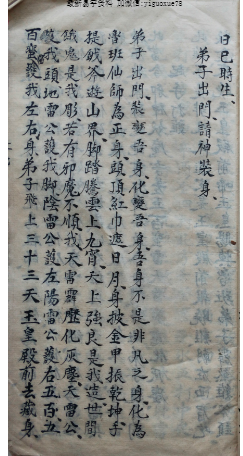 日巳時生
弟子出門請神裝身
弟子出門裝變吾身化變吾身吾身不是非凡之身化為
魯班仙師為正身頭頂紅巾遮日月身披金甲振乾坤手
提鉞斧遊山界腳踏騰雲上九霄天上強良是我造世間
餓鬼是我形若有邪魔不順我天雷霹靂化灰塵天雷公
我頭地雷公護我腳陰雷公護左陽雷公護右五百五
百蠻護我左右身弟子飛上三十三天玉皇殿前去藏身